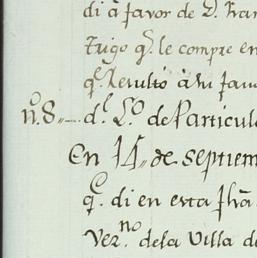 di a favor de D. Fran
trigo q.e le compre en
q.e resultó a su favo
n.o 8,, d.l L.o de Particula
En 14,, de septiem
q.e di en esta fha
Vez.no de la Villa d